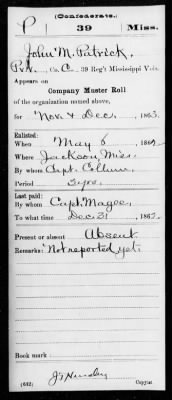 (Confederate.)
P 39 Miss.
John M. Patrick,
Pvt., Co. C., 39 Reg't Mississippi Vols.
Appears on
Company Muster Roll
of the organization named above,
for Nov & Dec., 1863.
Enlisted:
When May 6, 186
Where Jackson, Miss.
By whom Capt. Collum,
Period 3 yrs.
Last paid:
By whom Capt. Magee,
To what time Dec. 31, 186
Present or absent Absent
Remarks: Not reported yet.
Book mark:
(642) Copyist.